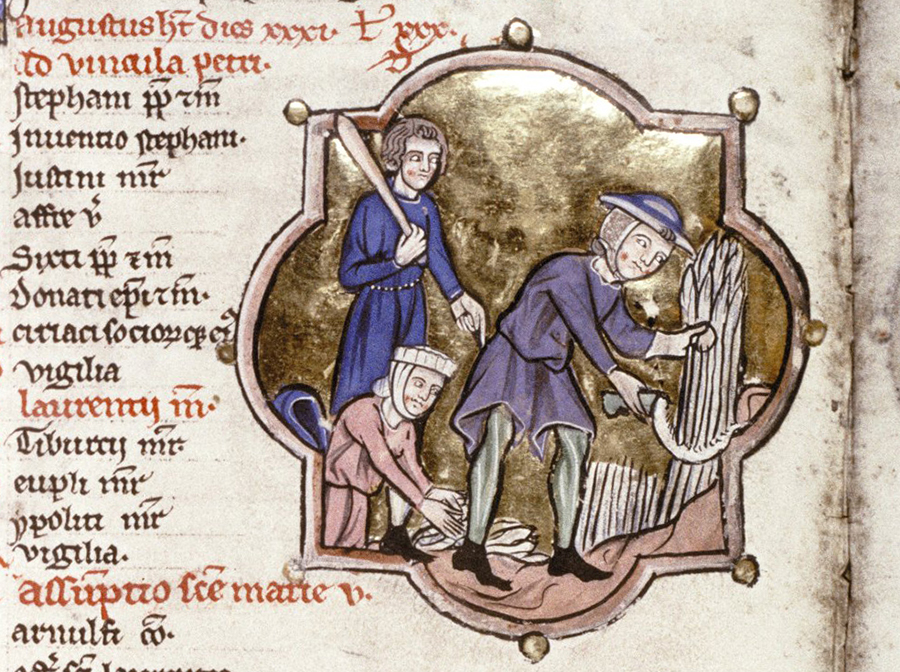 augustus ht̄ dies xxxi· L̄ xxx·
Ad vincula petri·
Stephani pp̄ ⁊ m̄
Inuentio stephani·
Justini mr̄
affre v̄
Sixti pp̄ ⁊ m̄
Donati ep̄i ⁊ m̄·
ciriaci socior
vigilia
laurentij m̄·
Tiburtij mr̄·
eupli mr̄
ypoliti mr̄
vigilia·
Assūptio sc̄e marie v·
arnulfi
laurentii